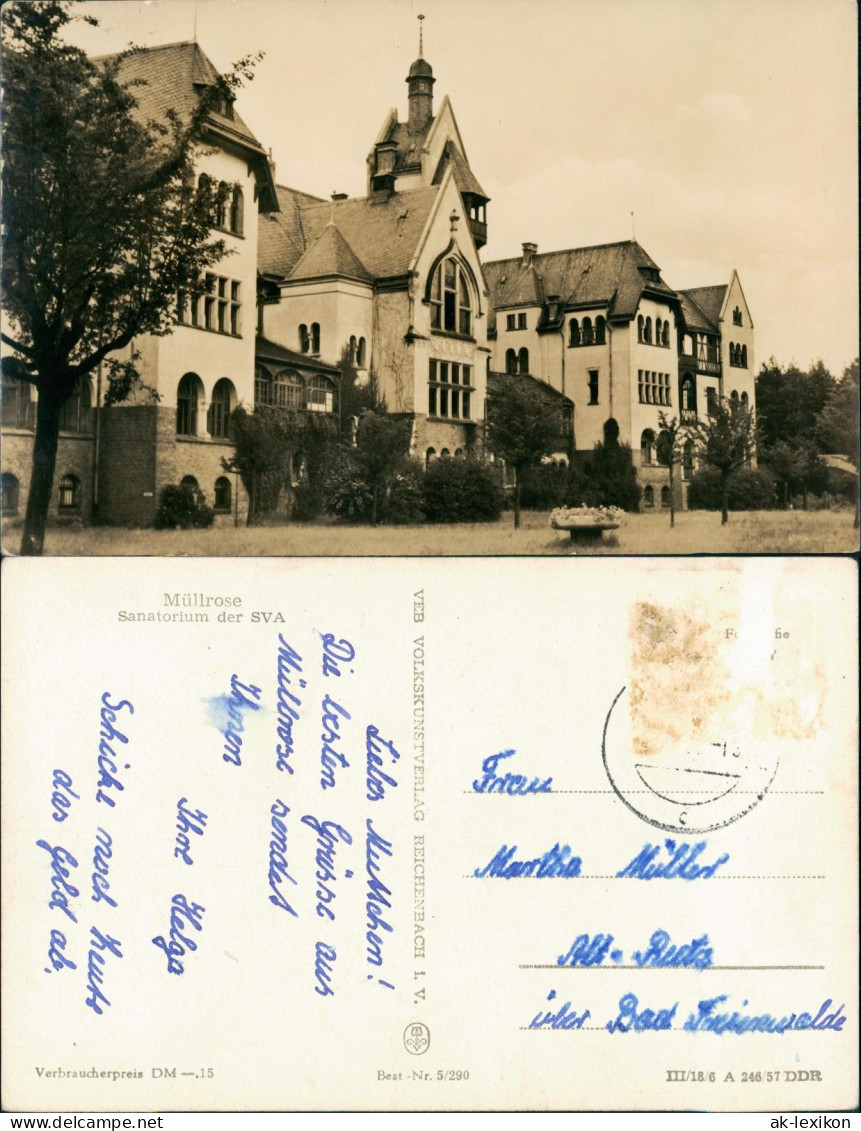 Müllrose
Sanatorium der SVA
Liebes Muttchen!
Die besten Grüsse aus
Müllrose sendet
Ihnen
Ihre Helga
Schicke noch heute
das Geld ab.
VEB VOLKSKUNSTVERLAG REICHENBACH i. V.
Frau
Martha Müller
Alt-Reetz
über Bad Freienwalde
c
Verbraucherpreis DM —.15
Best.-Nr. 5/290
III/18/6 A 246/57 DDR
delcampe.net
ak-lexikon